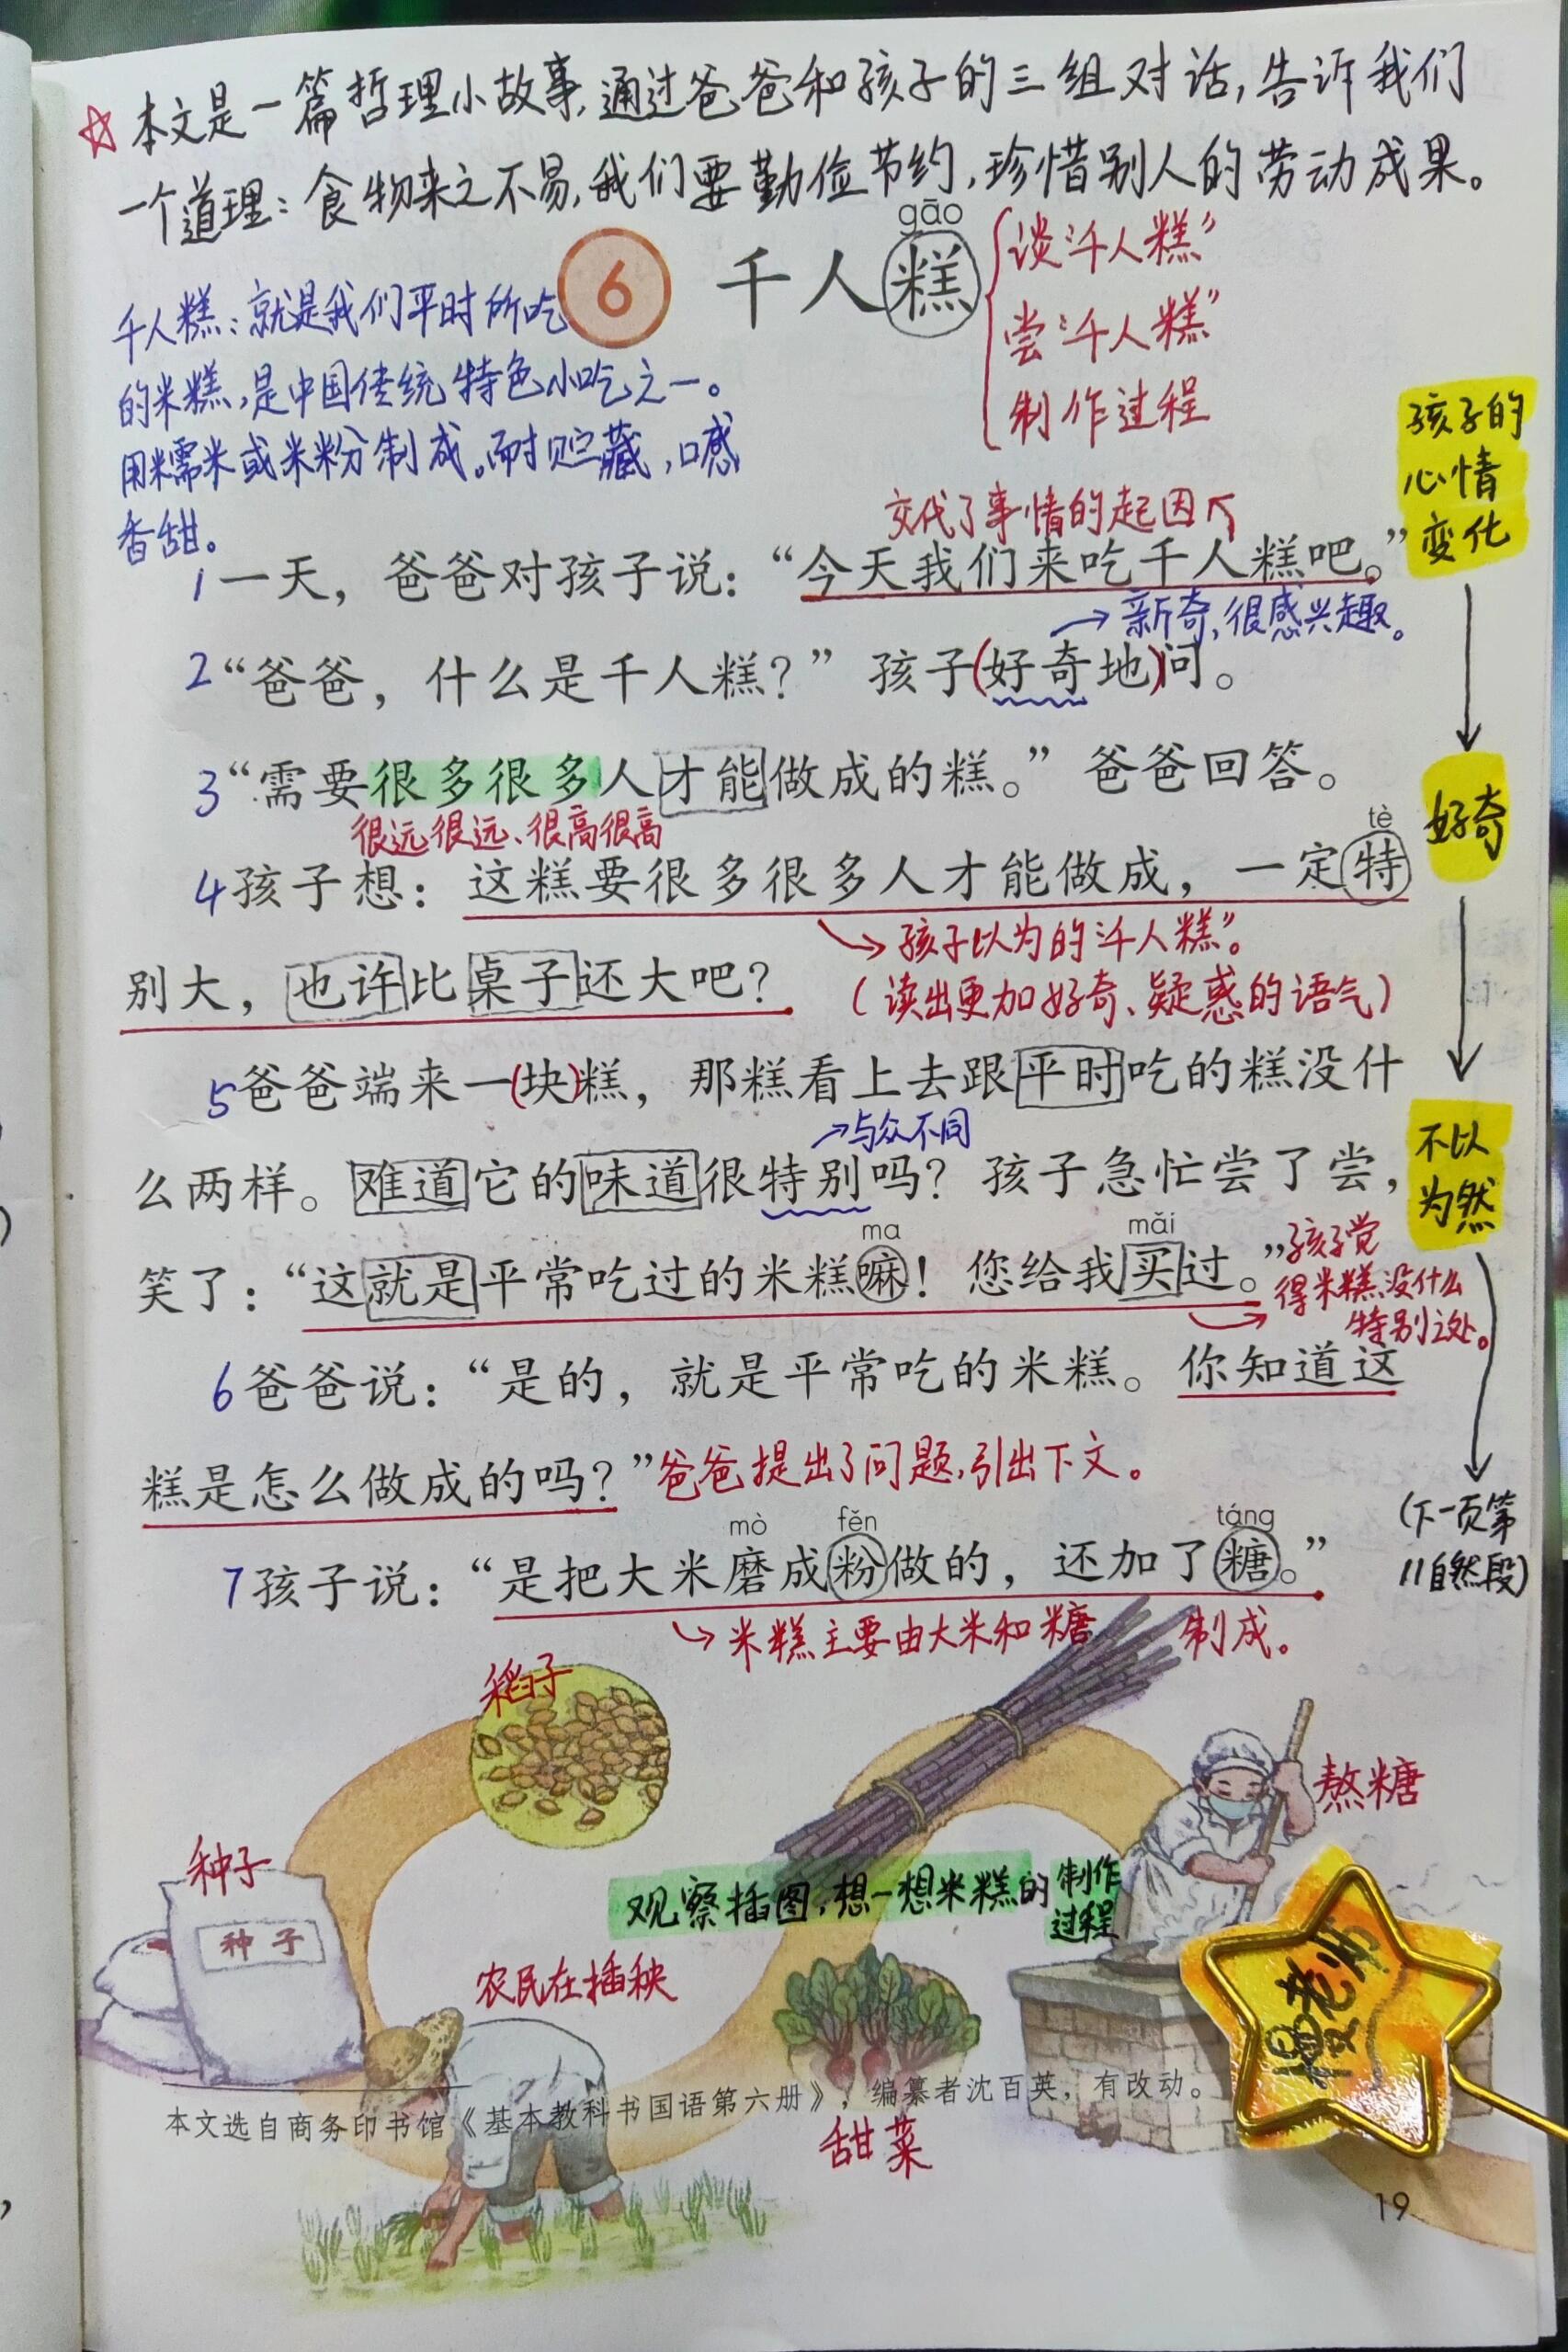 ☆本文是一篇哲理小故事,通过爸爸和孩子的三组对话,告诉我们
一个道理:食物来之不易,我们要勤俭节约,珍惜别人的劳动成果。
gāo
6 千人糕
谈“千人糕”
尝“千人糕”
制作过程
千人糕:就是我们平时所吃
的米糕,是中国传统特色小吃之一。
用糯米或米粉制成。耐贮藏,口感
香甜。
孩子的
心情
变化
交代了事情的起因
1一天，爸爸对孩子说：“今天我们来吃千人糕吧。”
→新奇,很感兴趣。
2“爸爸，什么是千人糕？”孩子(好奇地)问。
3“需要很多很多人才能做成的糕。”爸爸回答。
好奇
很远很远、很高很高
tè
4孩子想：这糕要很多很多人才能做成，一定特
→孩子以为的“千人糕”。
别大，也许比桌子还大吧？
(读出更加好奇、疑惑的语气)
5爸爸端来一(块)糕，那糕看上去跟平时吃的糕没什
→与众不同
不以
为然
么两样。难道它的味道很特别吗？孩子急忙尝了尝，
ma mǎi
笑了：“这就是平常吃过的米糕嘛！您给我买过。”
孩子觉
得米糕没什么
特别之处。
6爸爸说：“是的，就是平常吃的米糕。你知道这
糕是怎么做成的吗？”爸爸提出了问题,引出下文。
(下一页第
11自然段)
mò fěn táng
7孩子说：“是把大米磨成粉做的，还加了糖。”
→米糕主要由大米和糖 制成。
稻子
熬糖
种子
种子
观察插图,想一想米糕的制作
过程
农民在插秧
本文选自商务印书馆《基本教科书国语第六册》，编纂者沈百英，有改动。
甜菜
19